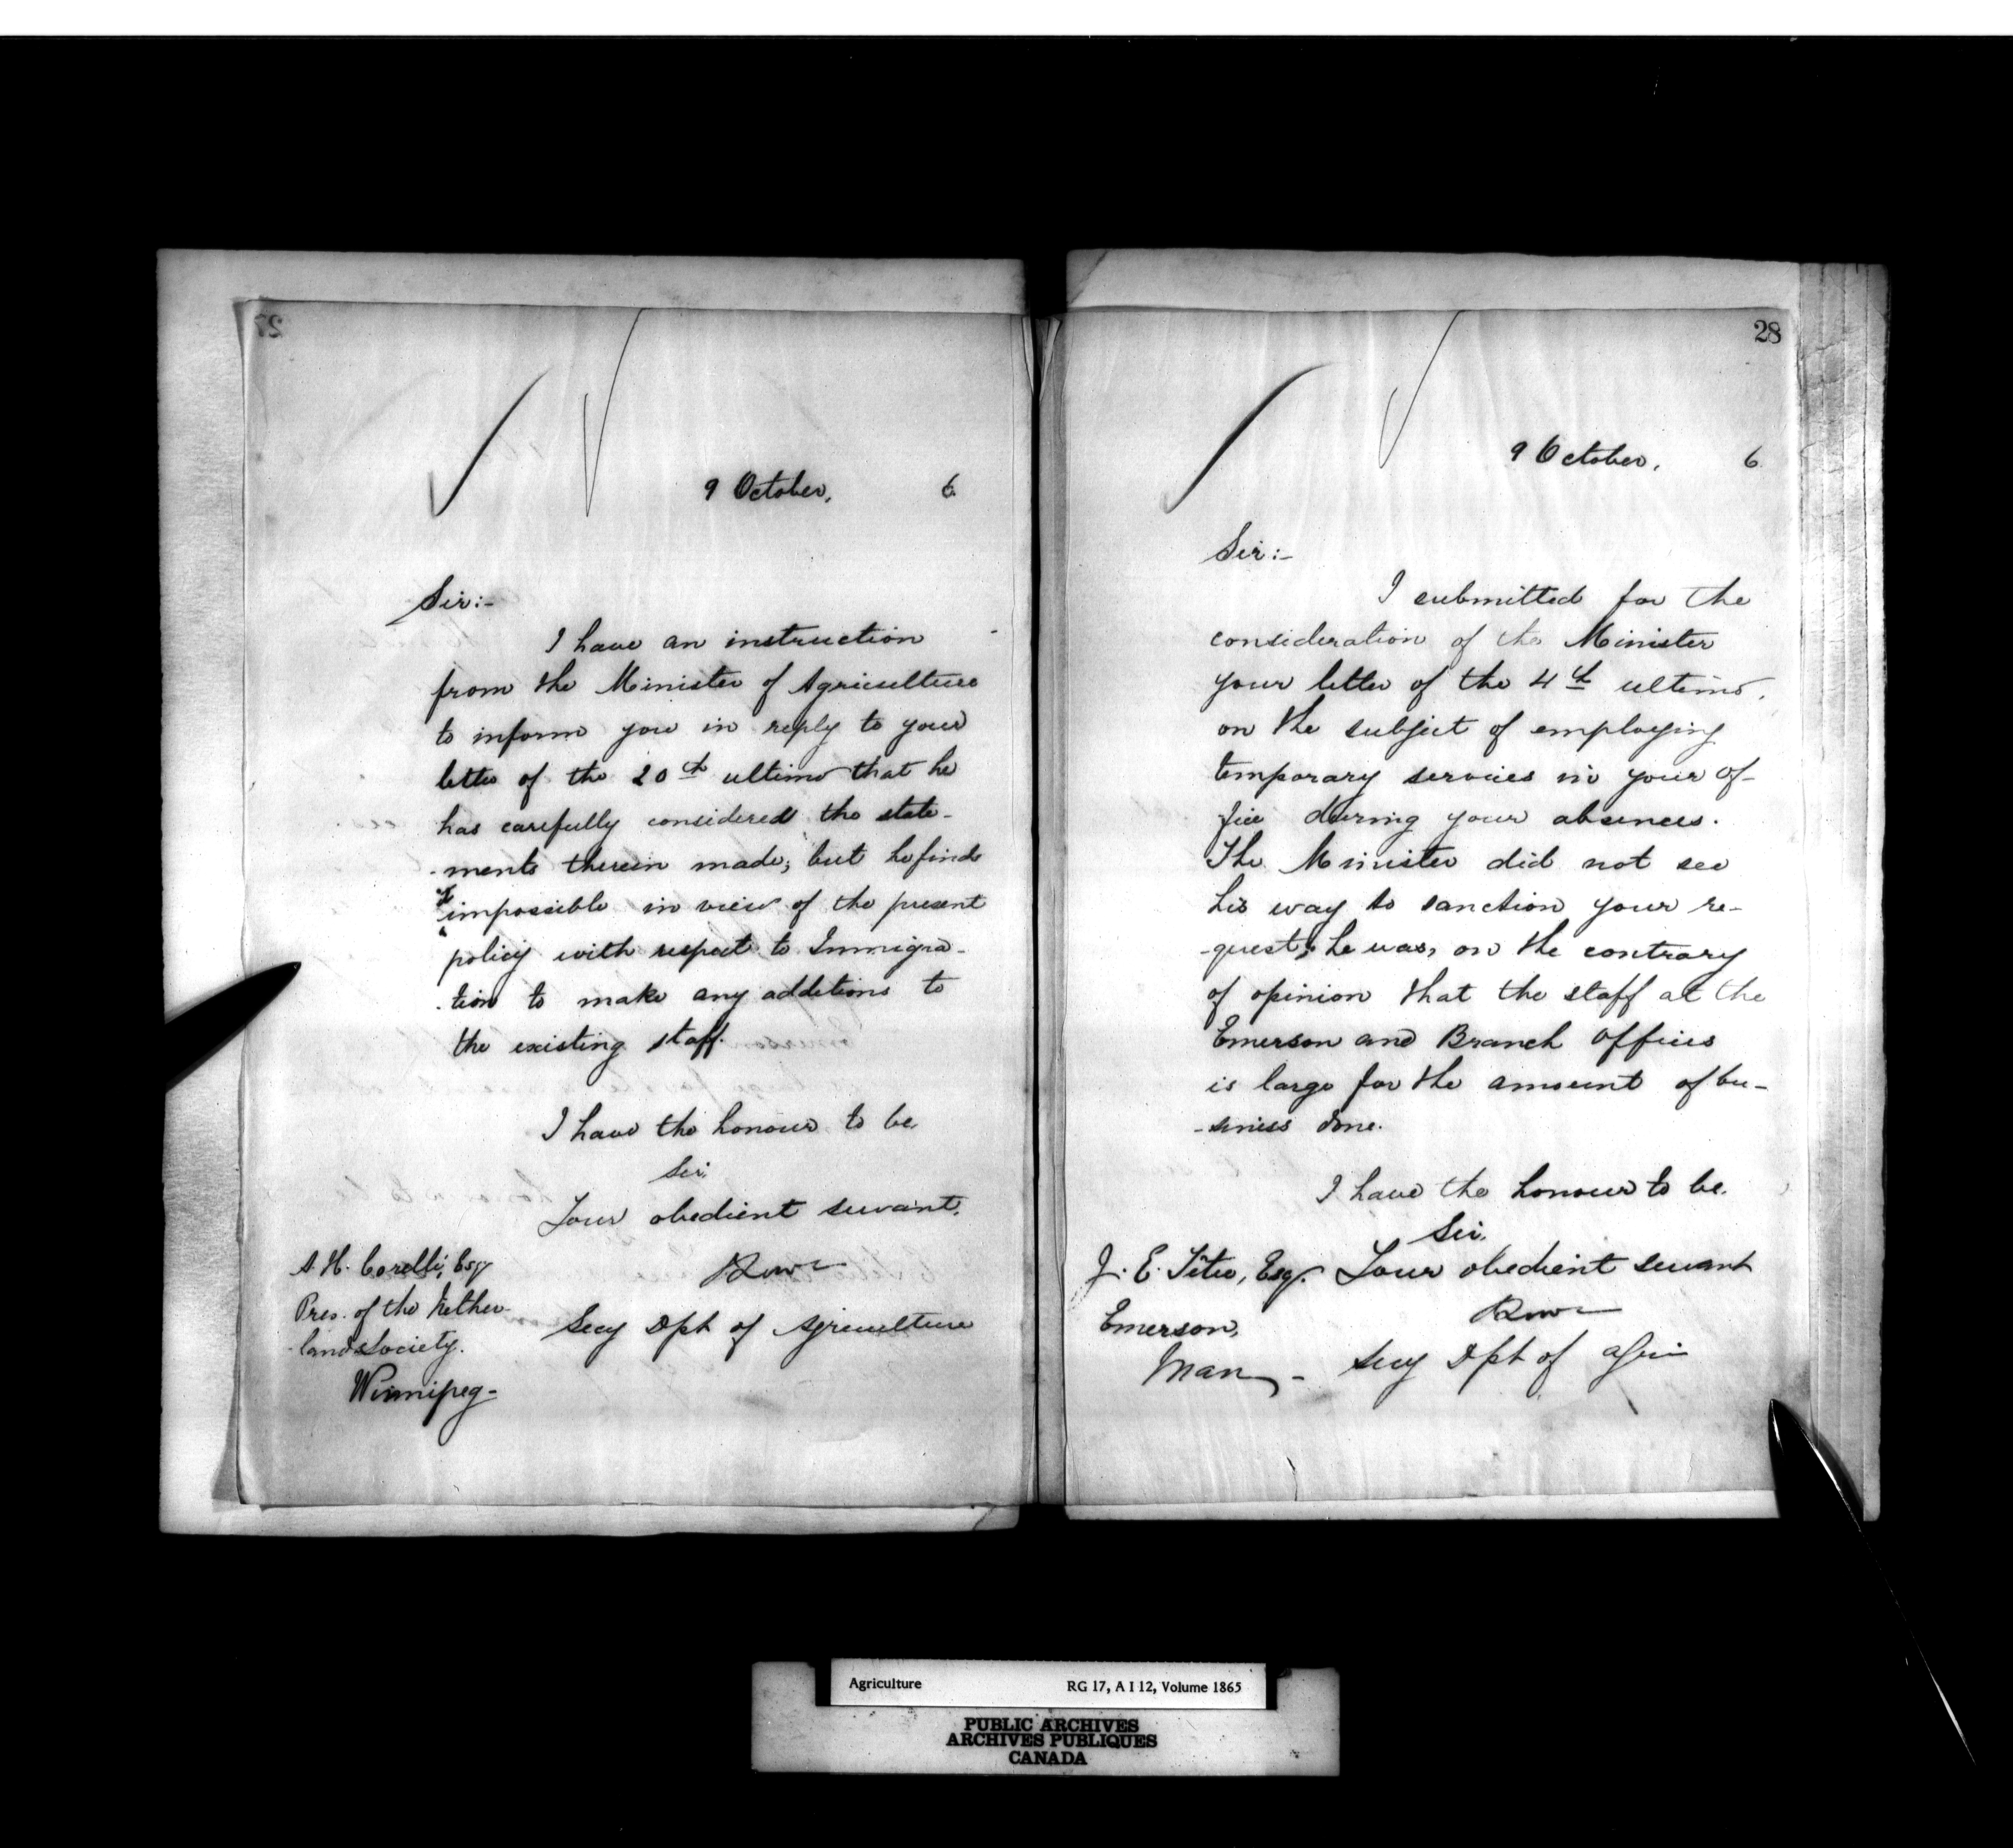 27
9 October, 6
Sir:-
I have an instruction
from the Minister of Agriculture
to inform you in reply to your
letter of the 20th ultimo that he
has carefully considered the state-
-ments therein made; but he finds
it
impossible in view of the present
policy with respect to Immigra-
-tion to make any additions to
the existing staff.
I have the honour to be,
Sir,
Your obedient servant,
Secy Dpt of Agriculture
A. H. Corelli, Esq
Pres. of the Nether-
-land Society.
Winnipeg-
28
9 October, 6
Sir:-
I submitted for the
consideration of the Minister
your letter of the 4th ultimo,
on the subject of employing
temporary services in your of-
fice during your absences.
The Minister did not see
his way to sanction your re-
-quest; he was, on the contrary
of opinion that the staff at the
Emerson and Branch Offices
is large for the amount of bu-
-siness done.
I have the honour to be,
Sir,
Your obedient servant
Secy Dpt of Agri
J. E. Têtu, Esq.
Emerson,
Man -
Agriculture RG 17, A I 12, Volume 1865
PUBLIC ARCHIVES
ARCHIVES PUBLIQUES
CANADA